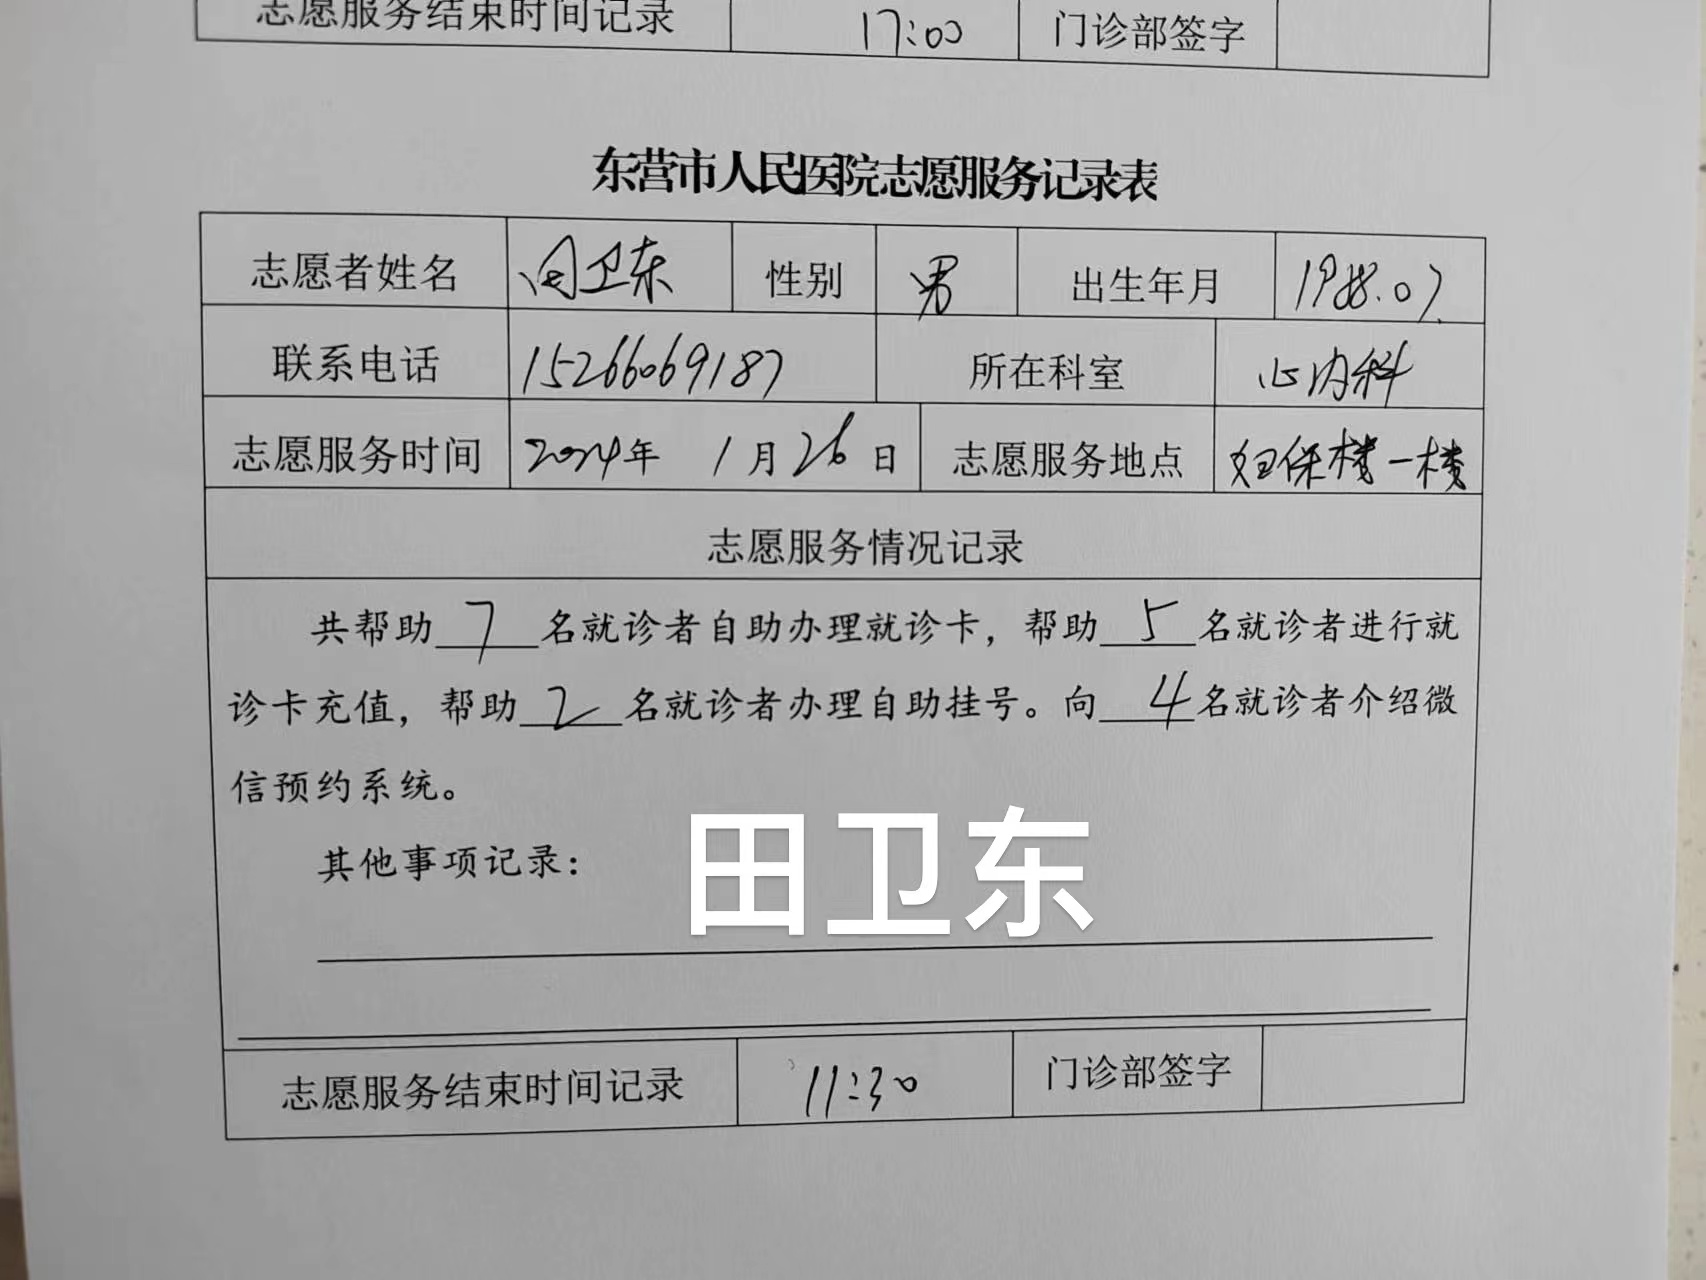 志愿服务结束时间记录 17:00 门诊部签字
东营市人民医院志愿服务记录表
志愿者姓名 田卫东 性别 男 出生年月 1988.07.
联系电话 15266069187 所在科室 心内科
志愿服务时间 2024年 1月26日 志愿服务地点 妇保楼一楼
志愿服务情况记录
共帮助 7 名就诊者自助办理就诊卡，帮助 5 名就诊者进行就
诊卡充值，帮助 2 名就诊者办理自助挂号。向 4 名就诊者介绍微
信预约系统。
其他事项记录：
田卫东
志愿服务结束时间记录 11:30 门诊部签字